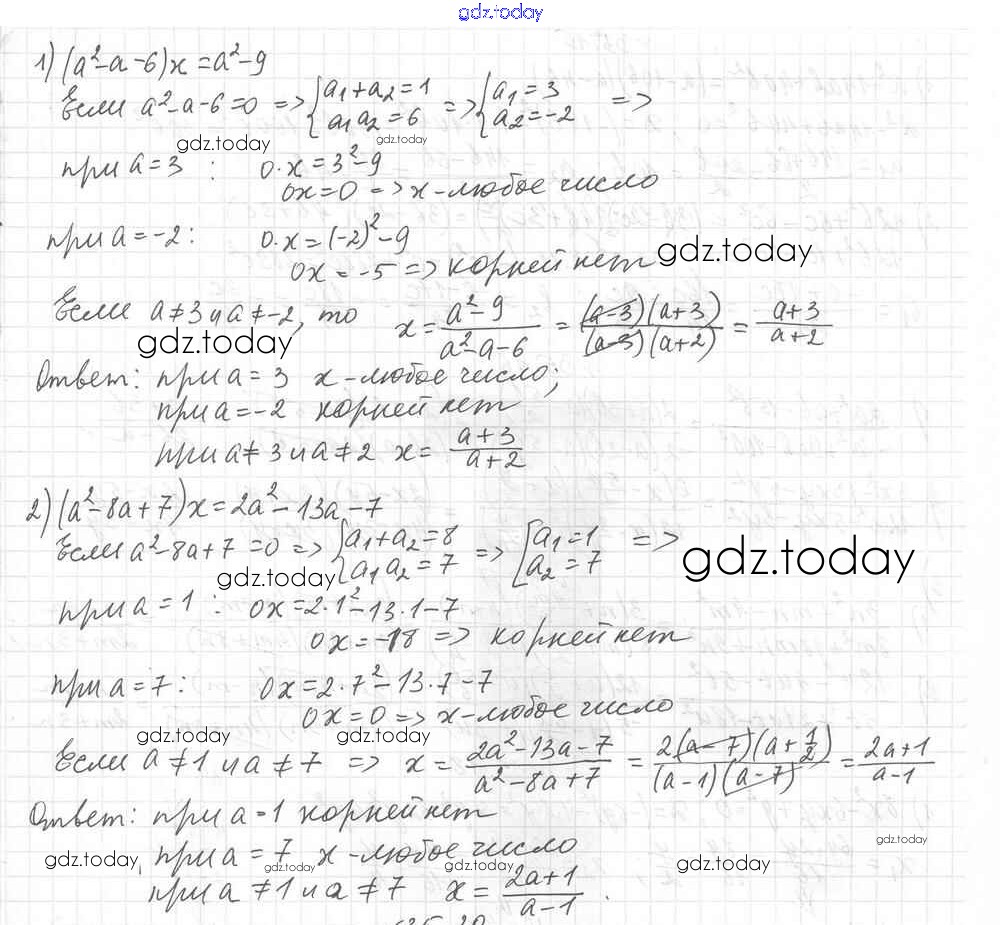 gdz.today
1) (a²-a-6)x = a²-9
Если a²-a-6=0 => { a₁+a₂=1 => { a₁=3 =>
a₁a₂=6 a₂=-2
gdz.today
при a=3 : 0·x=3²-9
0x=0 => x-любое число
при a=-2: 0·x=(-2)²-9
0x=-5 => корней нет gdz.today
Если a≠3 и a≠-2, то x = (a²-9)/(a²-a-6) = ((a-3)(a+3))/((a-3)(a+2)) = (a+3)/(a+2)
gdz.today
Ответ: при a=3 x-любое число;
при a=-2 корней нет
при a≠3 и a≠2 x= (a+3)/(a+2)
2) (a²-8a+7)x=2a²-13a-7
Если a²-8a+7=0 => { a₁+a₂=8 => [ a₁=1 =>
a₁a₂=7 a₂=7
gdz.today gdz.today
при a=1 : 0x=2·1²-13·1-7
0x=-18 => корней нет
при a=7: 0x=2·7²-13·7-7
0x=0 => x-любое число
gdz.today gdz.today
Если a≠1 и a≠7 => x = (2a²-13a-7)/(a²-8a+7) = (2(a-7)(a+1/2))/((a-1)(a-7)) = (2a+1)/(a-1)
Ответ: при a=1 корней нет
при a=7 x-любое число
gdz.today gdz.today gdz.today gdz.today gdz.today
при a≠1 и a≠7 x= (2a+1)/(a-1).